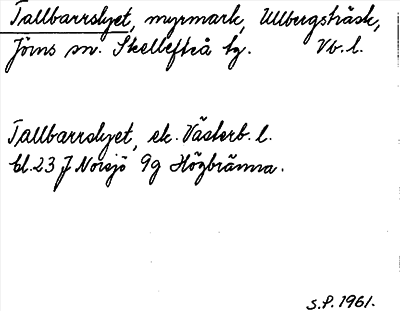 Tallbarrslyet, myrmark, Ullbergsträsk,
Jörns sn. Skellefteå tg. Vb. l.
Tallbarrslyet, ek. Västerb. l.
bl. 23 J Norsjö 9g Högbränna.
S.P. 1961.